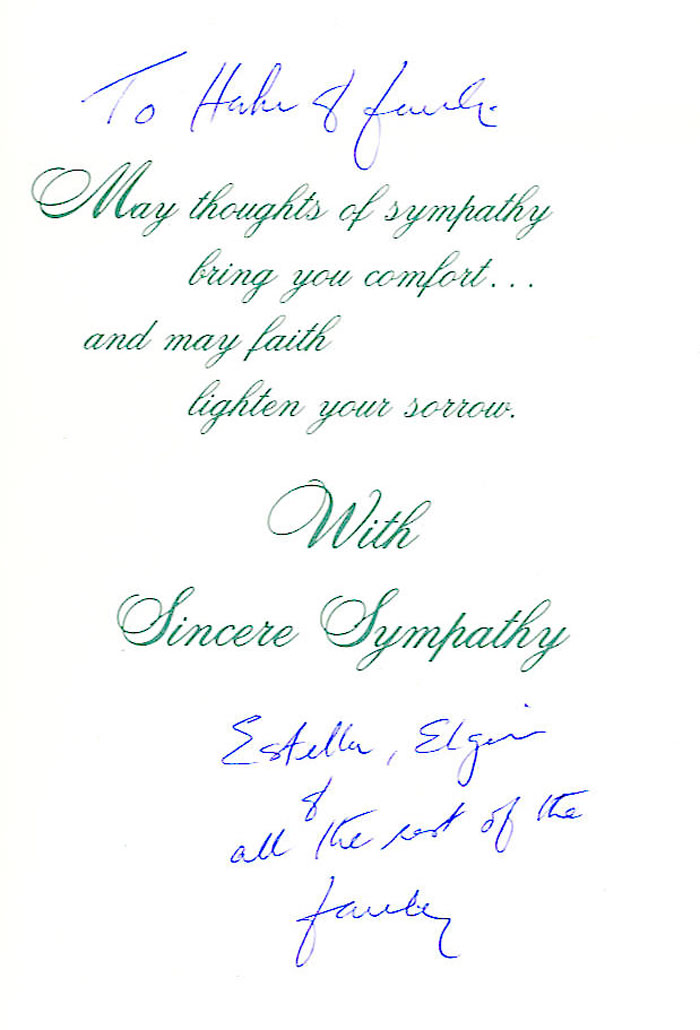 To & family
May thoughts of sympathy
bring you comfort...
and may faith
lighten your sorrow.
With
Sincere Sympathy
Estella, Elgin
&
all the rest of the
family